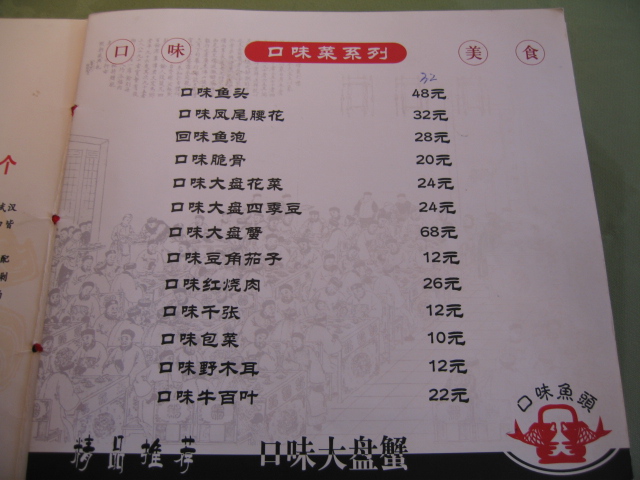 口 味 口味菜系列 美 食
32
口味鱼头 48元
口味凤尾腰花 32元
回味鱼泡 28元
口味脆骨 20元
口味大盘花菜 24元
口味大盘四季豆 24元
口味大盘蟹 68元
口味豆角茄子 12元
口味红烧肉 26元
口味千张 12元
口味包菜 10元
口味野木耳 12元
口味牛百叶 22元
口味魚頭
精品推荐 口味大盘蟹
个
武汉
配